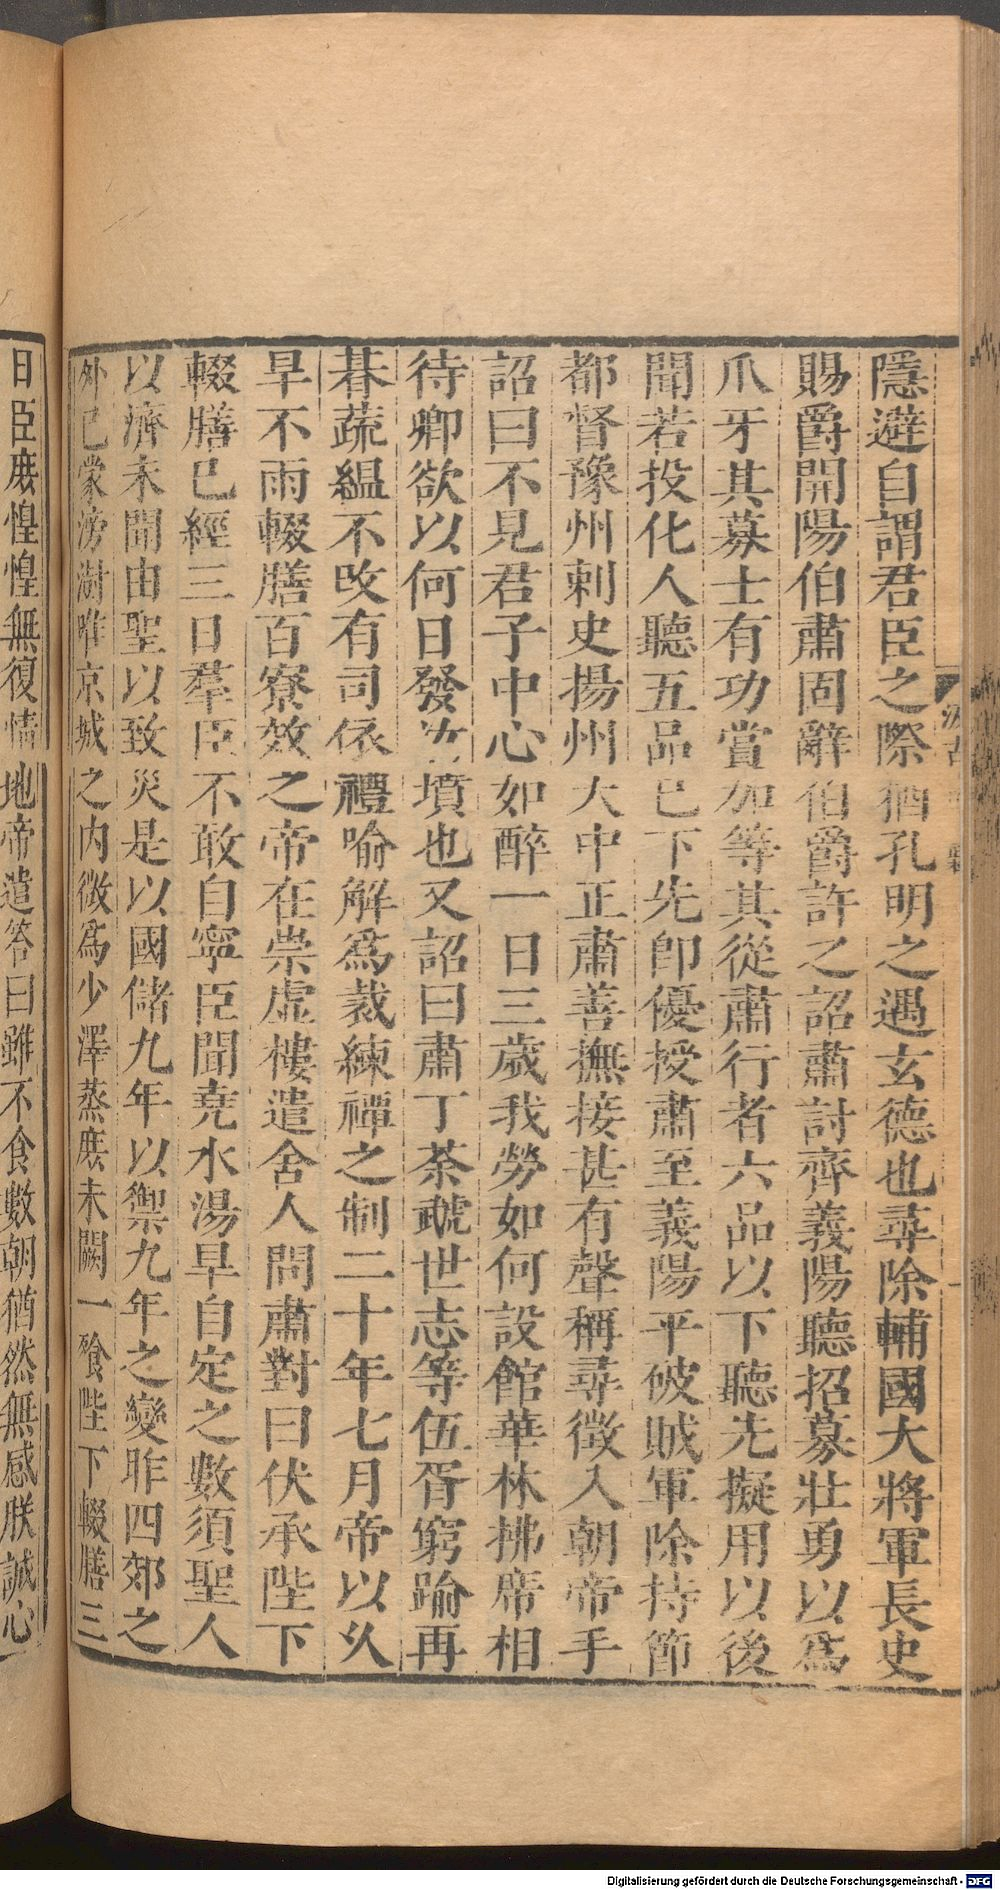 隱避自謂君臣之際猶孔明之遇玄德也尋除輔國大將軍長史
賜爵開陽伯肅固辭伯爵許之詔肅討齊義陽聽招募壯勇以爲
爪牙其募士有功賞加等其從肅行者六品以下聽先擬用以後
聞若投化人聽五品已下先卽優授肅至義陽平破賊軍除持節
都督豫州刺史揚州大中正肅善撫接甚有聲稱尋徵入朝帝手
詔曰不見君子中心如醉一日三歲我勞如何設館華林拂席相
待卿欲以何日發汝墳也又詔曰肅丁荼虣世志等伍胥窮踰再
朞蔬緼不改有司依禮喻解爲裁練禫之制二十年七月帝以久
旱不雨輟膳百寮效之帝在崇虛樓遣舍人問肅對曰伏承陛下
輟膳已經三日羣臣不敢自寧臣聞堯水湯旱自定之數須聖人
以濟未聞由聖以致災是以國儲九年以禦九年之變昨四郊之
外已蒙滂澍唯京城之內微爲少澤蒸庶未闕一飱陛下輟膳三
日臣庶惶惶無復情地帝遣答曰雖不食數朝猶然無感朕誠心
汲古
Digitalisierung gefördert durch die Deutsche Forschungsgemeinschaft - DFG